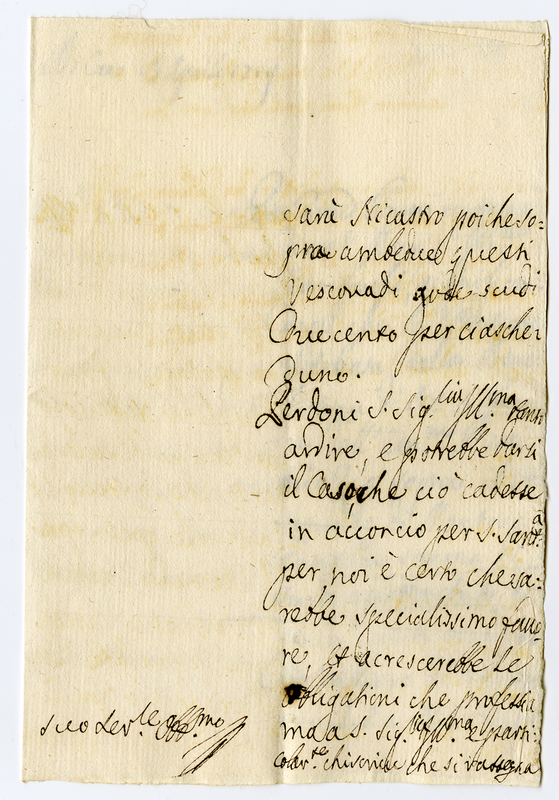 sarà Nicastro poiche so=
pra ambedue questi
Vescovadi gode scudi
Duecento per ciasche
duno.
Perdoni S. Sig.ria Ill.ma tant
ardire, e potrebbe darsi
il Caso, che ciò cadesse
in acconcio per S. Sant.à
per noi è certo che sa=
rebbe specialissimo favo
re, et accrescerebbe le
obbligationi che professia
mo a S. Sig.ria Ill.ma e parti:
colar.te chi scrive che si rassegna
suo dev.e Obb.mo